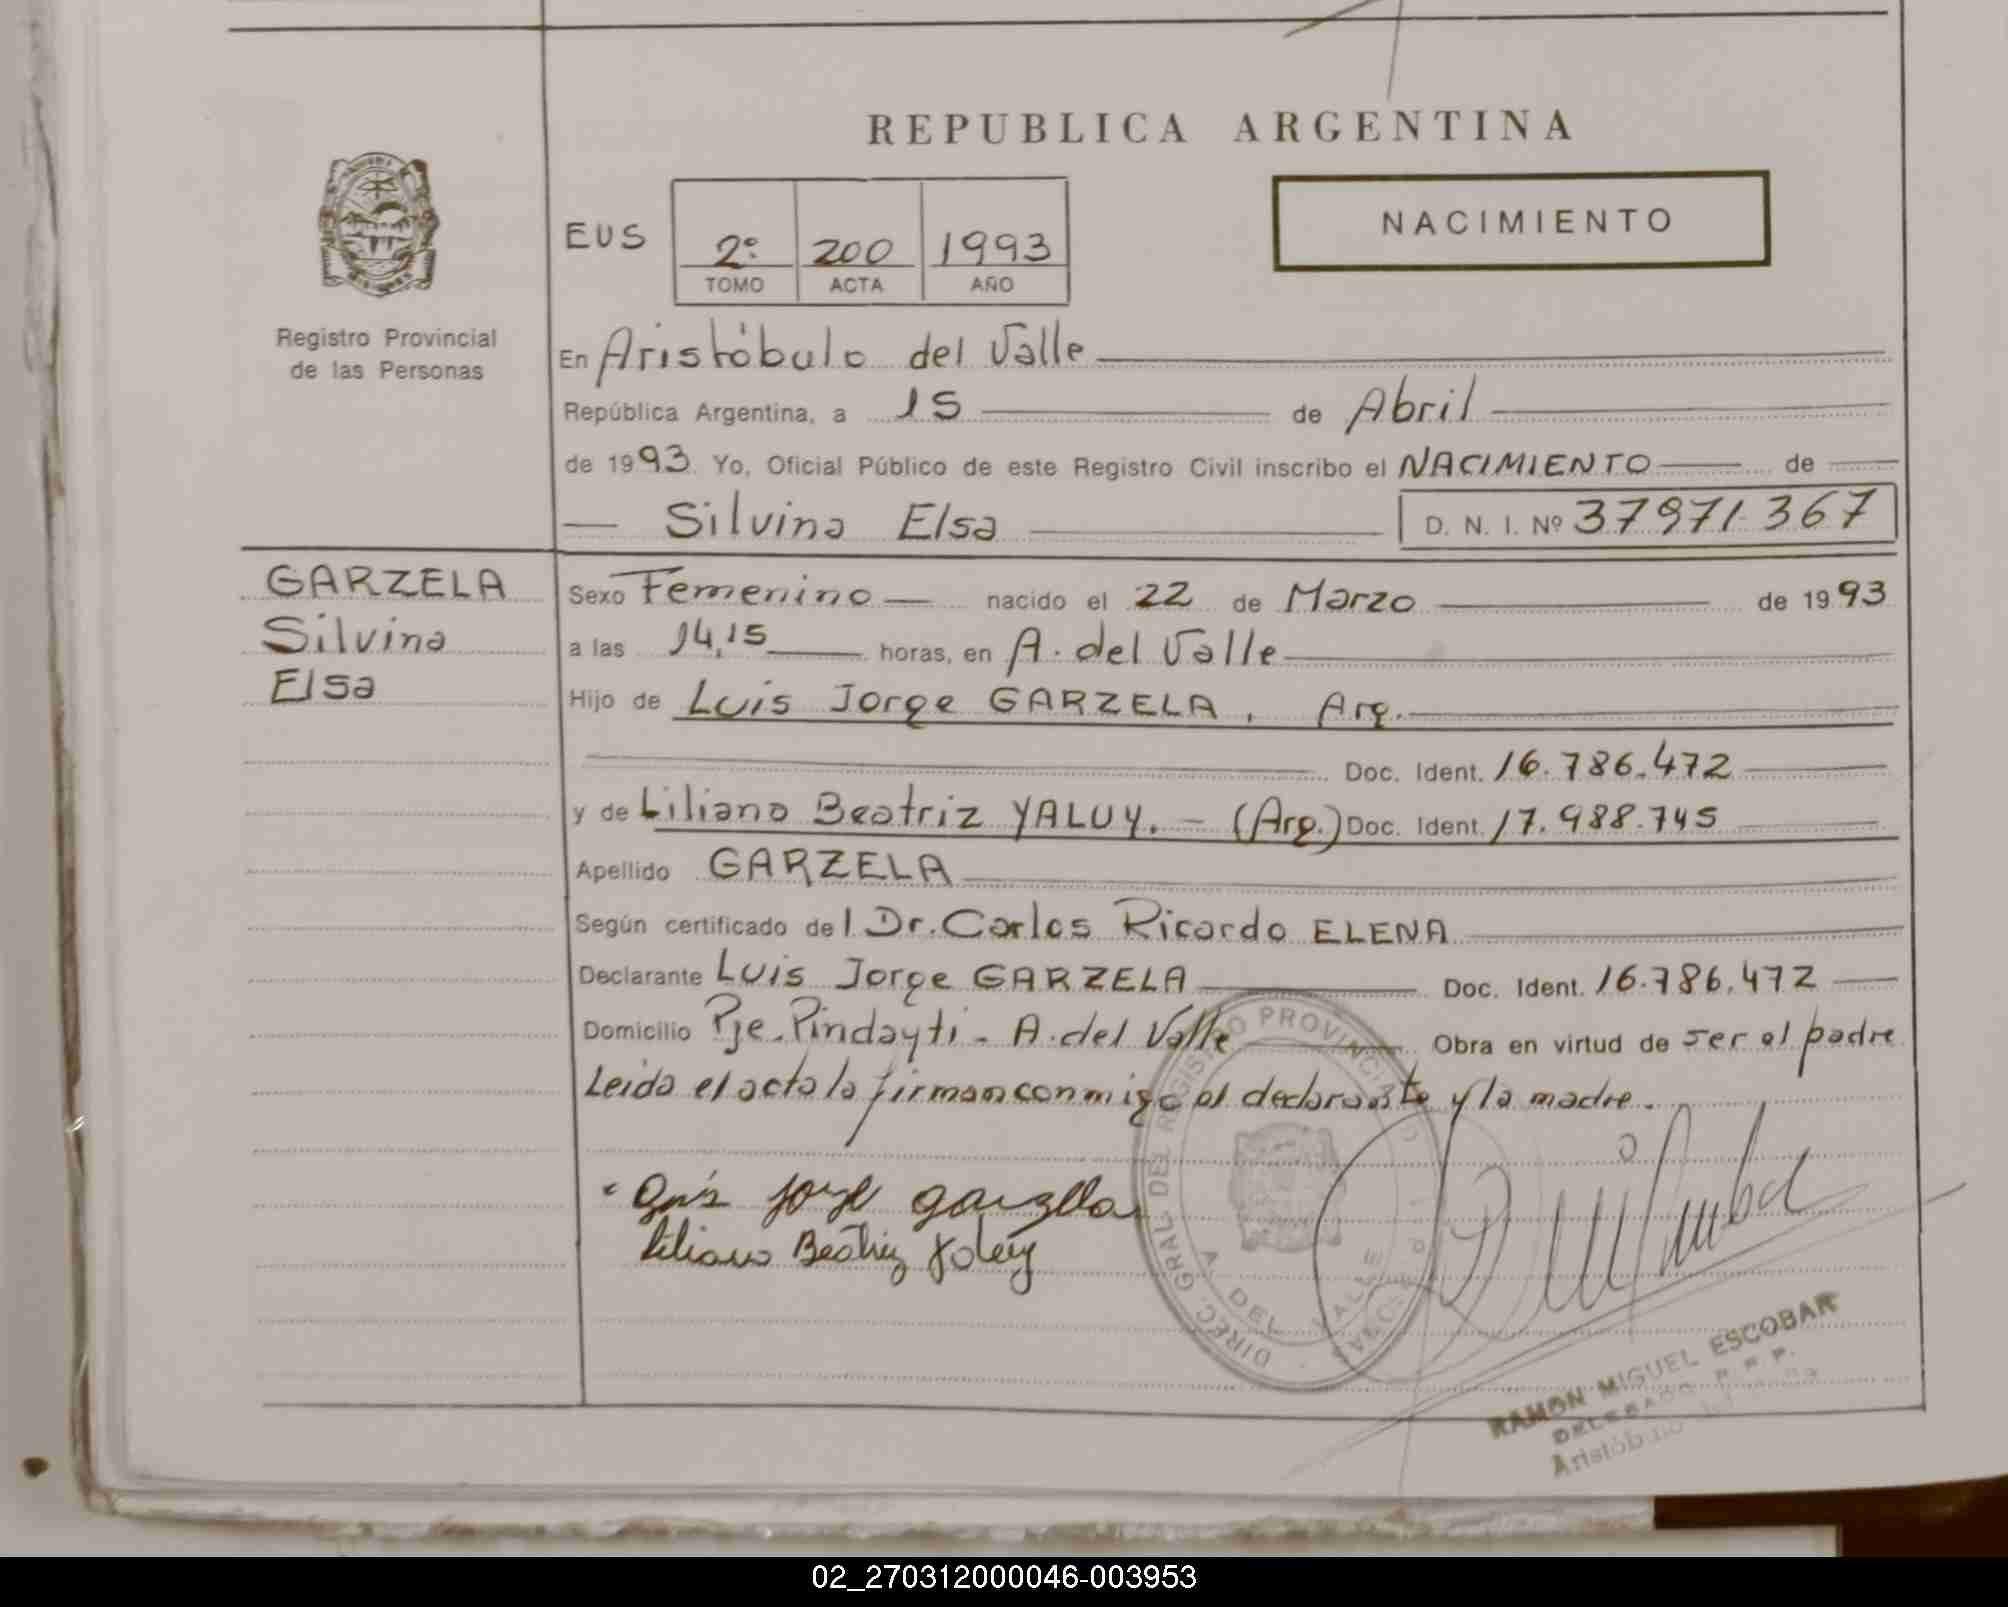 REPUBLICA ARGENTINA
NACIMIENTO
EUS
2º 200 1993
TOMO ACTA AÑO
Registro Provincial
de las Personas
En Aristóbulo del Valle
República Argentina, a 15 de Abril
de 1993. Yo, Oficial Público de este Registro Civil inscribo el NACIMIENTO de
Silvina Elsa D. N. I. Nº 37971367
GARZELA
Silvina
Elsa
Sexo Femenino nacido el 22 de Marzo de 1993
a las 14,15 horas, en A. del Valle
Hijo de Luis Jorge GARZELA, Arg.
Doc. Ident. 16.786.472
y de Liliana Beatriz YALUY. - (Arg.) Doc. Ident. 17.988.745
Apellido GARZELA
Según certificado del Dr. Carlos Ricardo ELENA
Declarante Luis Jorge GARZELA Doc. Ident. 16.786.472
Domicilio Pje. Pindayti - A. del Valle Obra en virtud de ser el padre
Leida el acta la firman conmigo el declarante y la madre.
jorge garzella
Liliana Beatriz
DIREC. GRAL. DEL REGISTRO PROVINCIAL
A. DEL VALLE
RAMON MIGUEL ESCOBAR
DELEGADO
Aristóbulo del
02_270312000046-003953